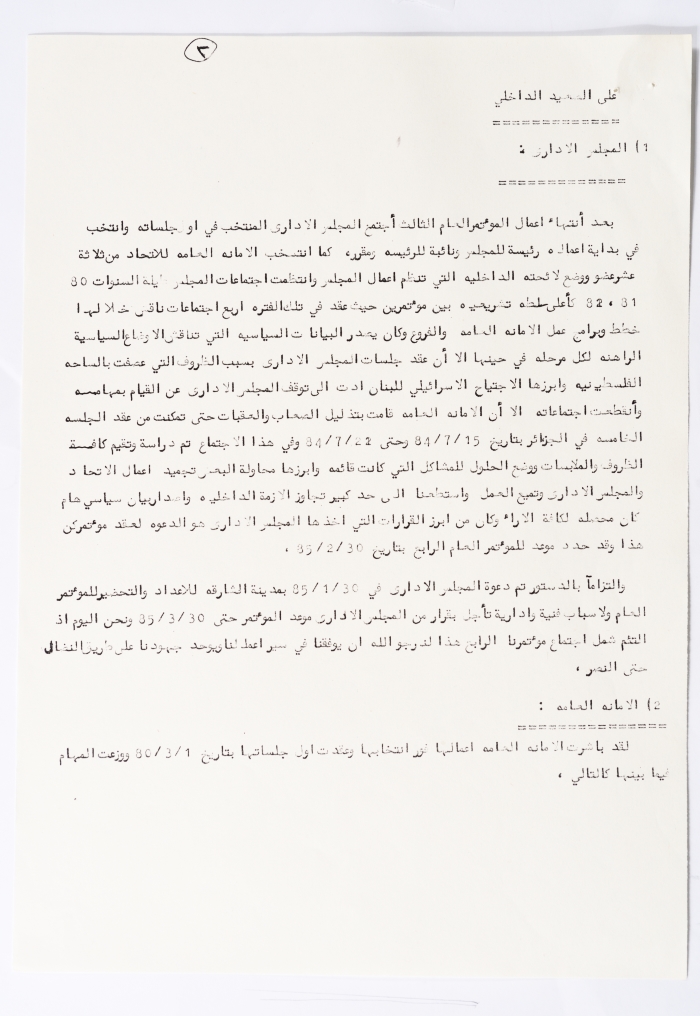 ٢
على الصعيد الداخلي
=============
1) المجلس الادارى :
=============
بعد أنتهاء اعمال الموءتمر العام الثالث أجتمع المجلس الادارى المنتخب في اول جلساته وانتخب
في بداية اعماله رئيسة للمجلس ونائبة للرئيسه ومقرره كما انتسخب الامانه العامه للاتحاد من ثلاثة
عشر عضو ووضع لائحته الداخليه التي تنظم اعمال المجلس وانتظمت اجتماعات المجلس طيلة السنوات 80
، 81 ، 82 كأعلى سلطه تشريعيه بين موءتمرين حيث عقد في تلك الفتره اربع اجتماعات ناقش خلالهــا
خطط وبرامج عمل الامانه العامه والفروع وكان يصدر البيانات السياسيه التي تناقش الاوضاع السياسية
الراهنه لكل مرحله في حينها الا أن عقد جلسات المجلس الادارى بسبب الظروف التي عصفت بالساحه
الفلسطينيه وابرزها الاجتياح الاسرائيلي للبنان ادت الى توقف المجلس الادارى عن القيام بمهامــه
وأنقطعت اجتماعاته الا أن الامانه العامه قامت بتذليل الصعاب والعقبات حتى تمكنت من عقد الجلسه
الخامسه في الجزائر بتاريخ 84/7/15 وحتى 84/7/22 وفي هذا الاجتماع تم دراسة وتقيم كافـــة
الظروف والملابسات ووضع الحلول للمشاكل التي كانت قائمه وابرزها محاولة البعض تجميد اعمال الاتحاد
والمجلس الادارى وتميع العمل واستطعنا الى حد كبير تجاوز الازمة الداخليه واصدار بيان سياسي هام
كان محصله لكافة الاراء وكان من ابرز القرارات التي اخذها المجلس الادارى هو الدعوه لعقد موءتمركن
هذا وقد حدد موعد للموءتمر العام الرابع بتاريخ 85/2/30 ،
والتزاماً بالدستور تم دعوة المجلس الادارى في 85/1/30 بمدينة الشارقه للاعداد والتحضير للموءتمر
العام ولاسباب فنية وادارية تأجل بقرار من المجلس الادارى موعد الموءتمر حتى 85/3/30 ونحن اليوم اذ
التئم شمل اجتماع موءتمرنا الرابع هذا لنرجو الله ان يوفقنا في سير اعمالنا ويوحد جهودنا على طريق النضال
حتى النصر ،
2) الامانه العامه :
===============
لقد باشرت الامانه العامه اعمالها فور انتخابها وعقدت اول جلساتها بتاريخ 80/3/1 ووزعت المهام
فيما بينها كالتالي ،